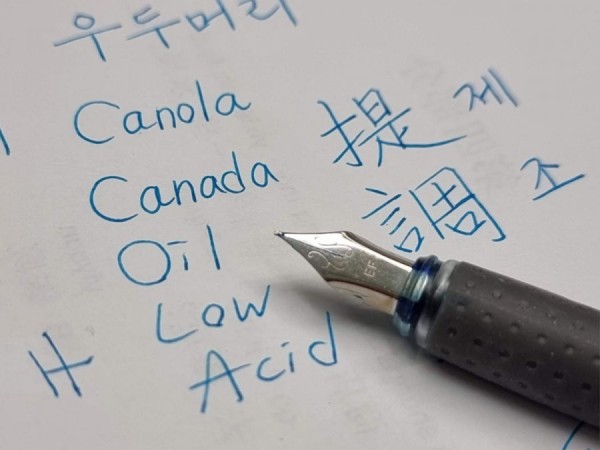 우두머리
Canola 提 제
Canada 調 조
Oil
Low
Acid
EF